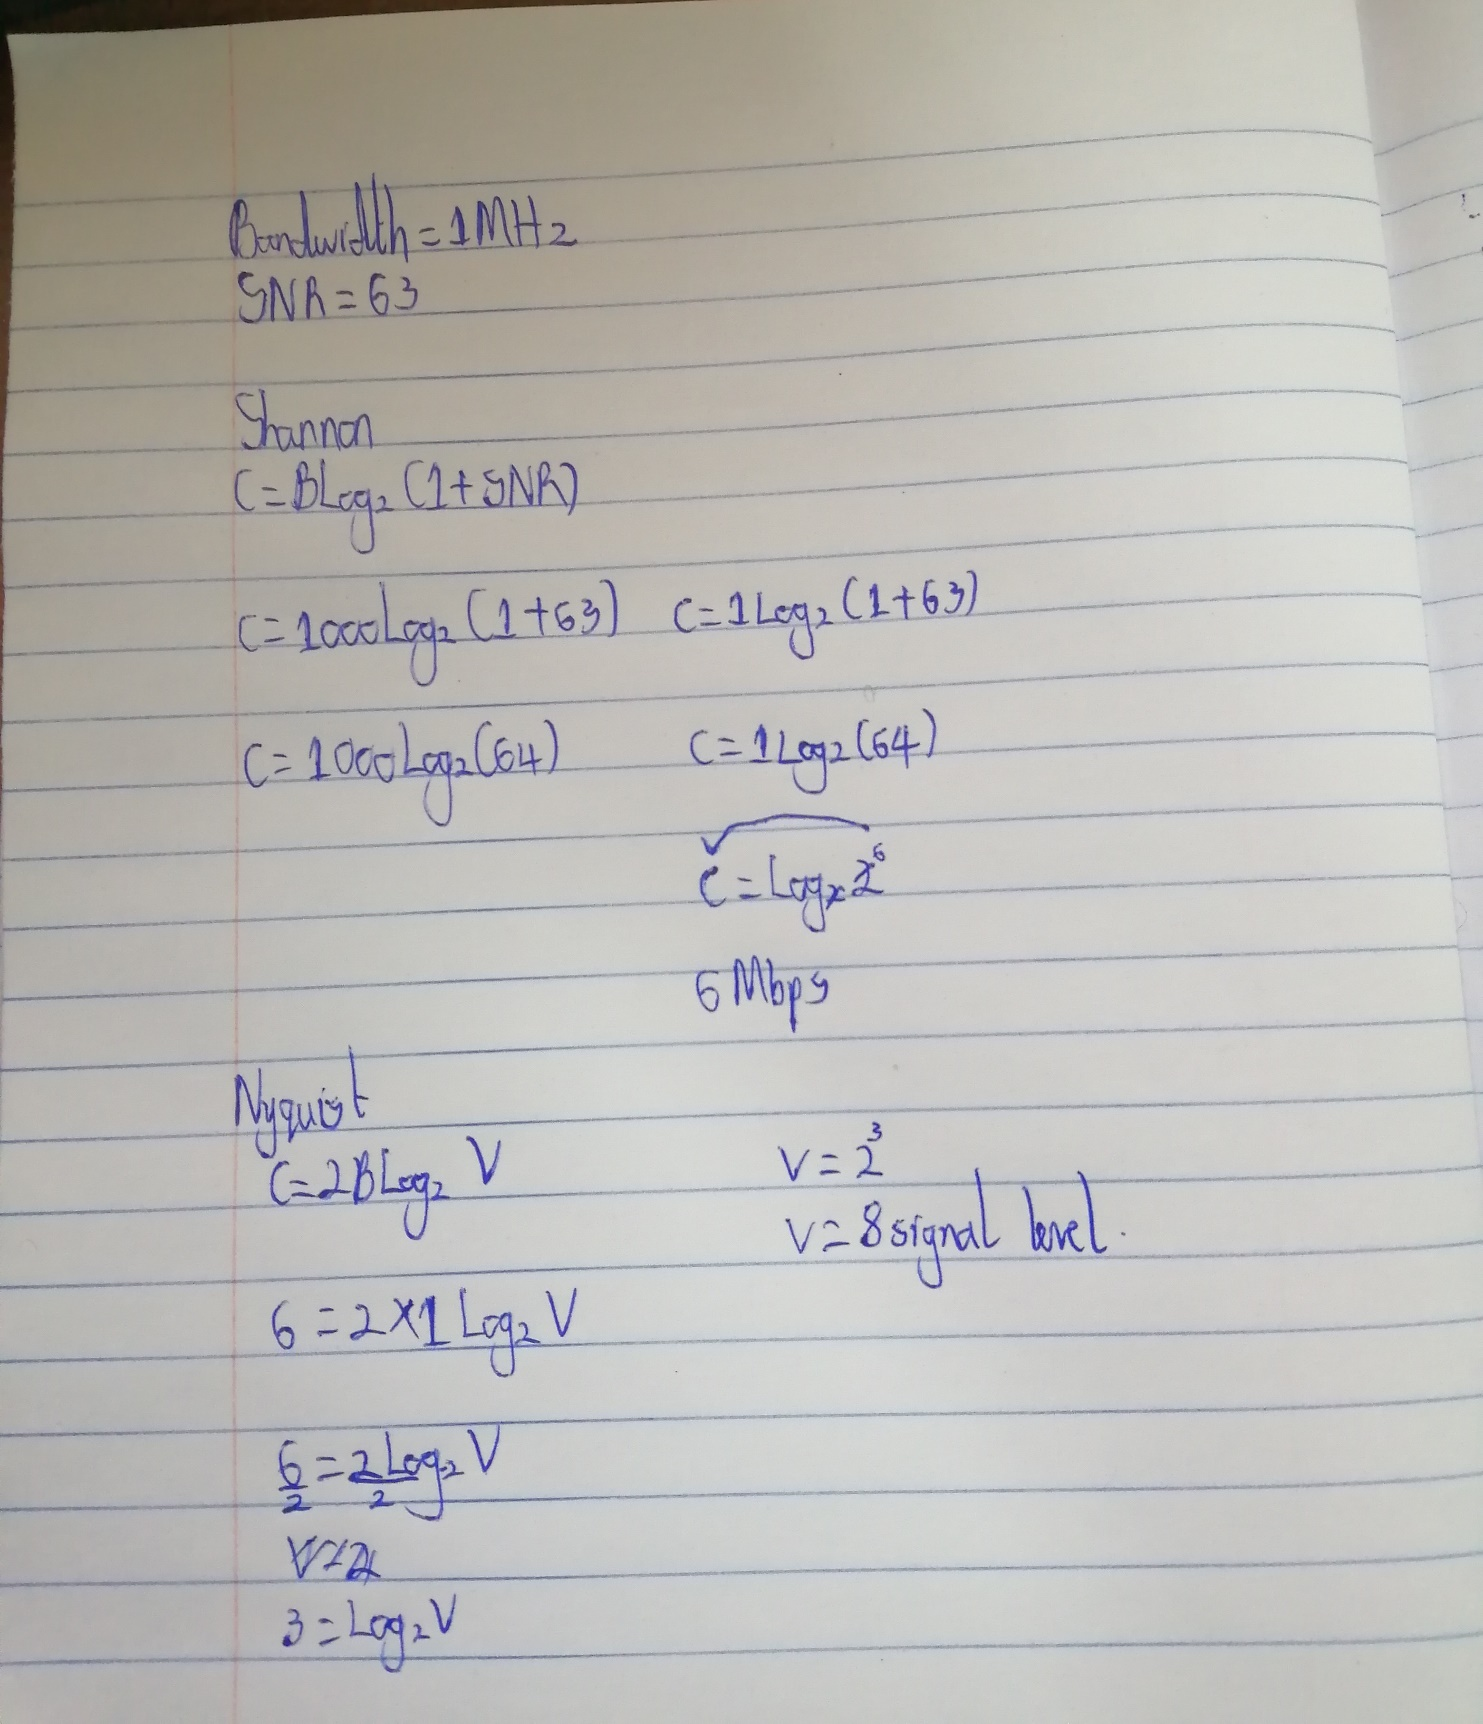 Bandwidth = 1MHz
SNR = 63
Shannon
C = BLog₂ (1 + SNR)
C = 1000Log₂ (1 + 63) C = 1Log₂ (1 + 63)
C = 1000Log₂(64) C = 1Log₂(64)
C = Log₂ 2⁶
6 Mbps
Nyquist
C = 2BLog₂ V V = 2³
V = 8 signal level.
6 = 2 × 1 Log₂ V
6/2 = 2Log₂ V/2
3 = Log₂ V